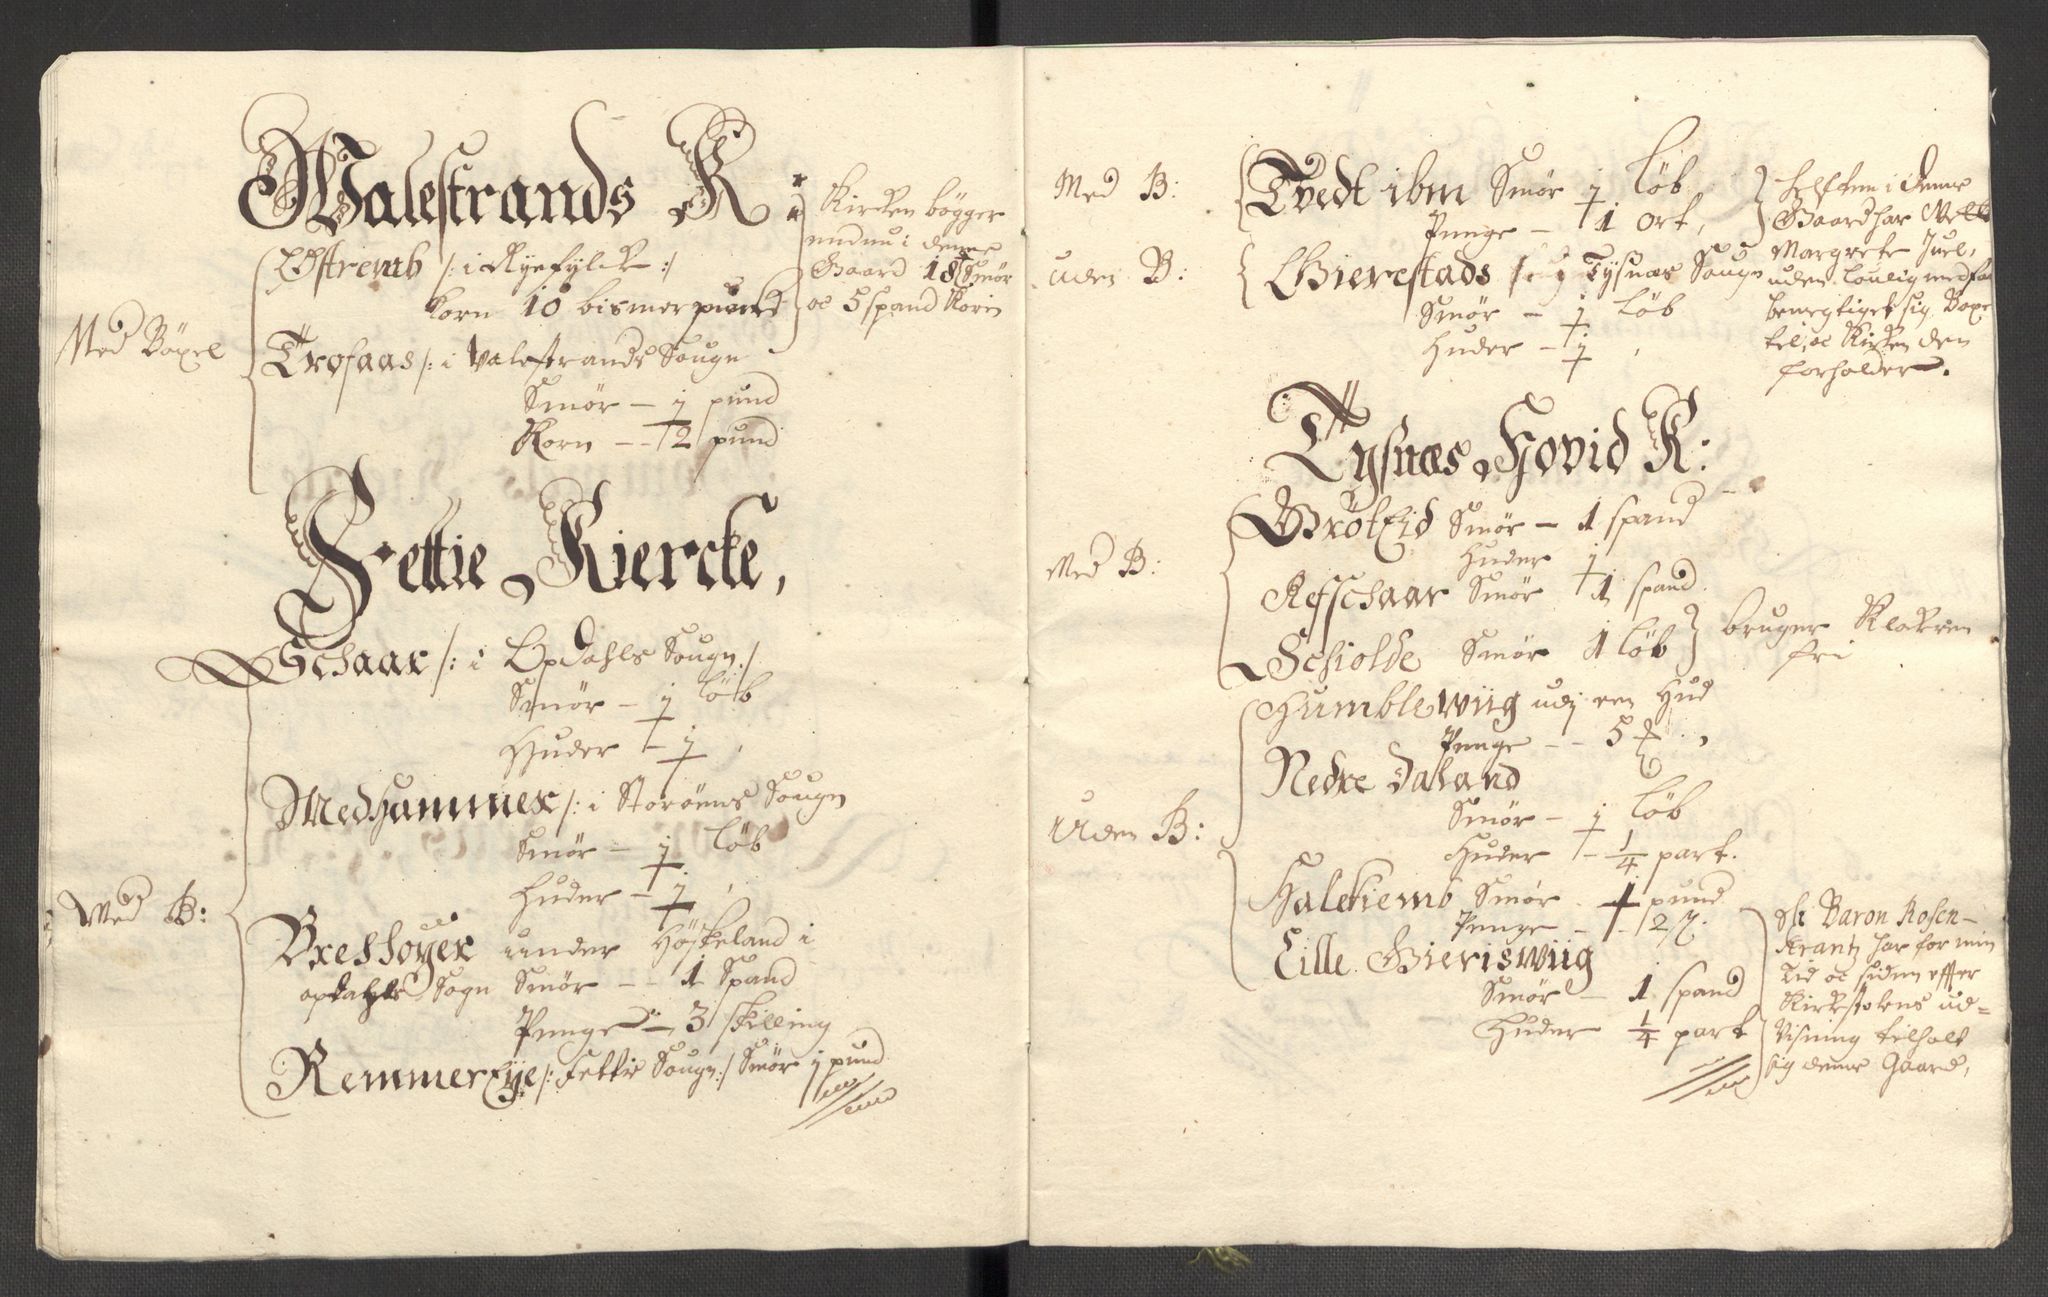 Walestrands K:
Østremb /: i Ryefylck :/
Korn 10 bismerpund
Kircken bøgger
endnu i denne
Gaard 18 Smör
oc 5 spand Korn
Med Böxel
Trosaas /: i Valestrands Sougn
Smör — j pund
Korn — - 2 pund
Fettie Kiercke,
Schaar /: i Opdahls Sougn :/
Smör — j löb
Huder — j,
Medhammer /: i Storöens Sougn
Smör — j löb
Huder — j,
Med B:
Brethoyer under Höskeland i
opdahls Sogn Smör — - 1 Spand
Penge — 3 skilling
RemmerEye /: Fettie Sougn :/ Smör j pund
Med B:
Tvedt ibm Smör j löb
Penge — 1 ort,
Uden B:
Gierestads Tysnæs Sougn
Smör — j löb
Huder — j,
helften i denne
Gaard har
Margrete Juel,
uden loulig
bemegtiget sig Böxe
til, oc Kircken den
forholder.
Tysnæs Hovid K:
Med B:
GrötEid Smör — 1 spand
Huder j
Refschaar Smör 1 spand
Schiolde Smör 1 löb
bruger Klocken
fri
Humblewiig udj een Hud
Penge — - 5 ß,
Nedre Daland
Smör — j löb
Uden B:
Huder — 1/4 part.
Halekiemb Smör - 1 pund
Penge - - 2
Lille Gieriswiig
Smör — 1 spand
Huder 1/4 part
Baron Rosen-
Krantz har for min
tid oc siden effter
Kirkestolens ud-
Visning tilholt
sig denne Gaard,